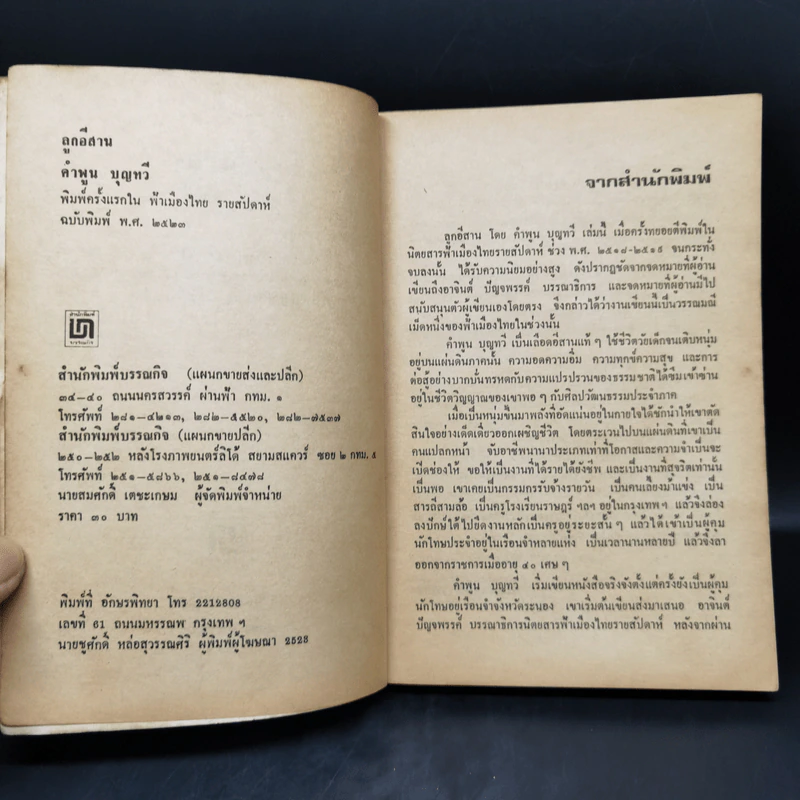 ลูกอีสาน
คำพูน บุญทวี
พิมพ์ครั้งแรกใน ฟ้าเมืองไทย รายสัปดาห์
ฉบับพิมพ์ พ.ศ. ๒๕๒๓
สำนักพิมพ์
บรรณกิจ
สำนักพิมพ์บรรณกิจ (แผนกขายส่งและปลีก)
๓๔-๔๐ ถนนนครสวรรค์ ผ่านฟ้า กทม. ๑
โทรศัพท์ ๒๘๑-๔๒๑๓, ๒๘๒-๕๕๒๐, ๒๘๒-๗๕๓๗
สำนักพิมพ์บรรณกิจ (แผนกขายปลีก)
๒๕๐-๒๕๒ หลังโรงภาพยนตร์ลิโด้ สยามสแควร์ ซอย ๒ กทม. ๕
โทรศัพท์ ๒๕๑-๕๘๖๖, ๒๕๑-๘๔๗๘
นายสมศักดิ์ เตชะเกษม ผู้จัดพิมพ์จำหน่าย
ราคา ๓๐ บาท
พิมพ์ที่ อักษรพิทยา โทร 2212808
เลขที่ 61 ถนนมหรรณพ กรุงเทพ ฯ
นายชูศักดิ์ หล่อสุวรรณศิริ ผู้พิมพ์ผู้โฆษณา 2523
จากสำนักพิมพ์
ลูกอีสาน โดย คำพูน บุญทวี เล่มนี้ เมื่อครั้งทยอยตีพิมพ์ใน
นิตยสารฟ้าเมืองไทยรายสัปดาห์ ช่วง พ.ศ. ๒๕๑๘-๒๕๑๙ จนกระทั่ง
จบลงนั้น ได้รับความนิยมอย่างสูง ดังปรากฏชัดจากจดหมายที่ผู้อ่าน
เขียนถึงอาจินต์ ปัญจพรรค์ บรรณาธิการ และจดหมายที่ผู้อ่านมีไป
สนับสนุนตัวผู้เขียนเองโดยตรง จึงกล่าวได้ว่างานเขียนนี้เป็นวรรณมณี
เม็ดหนึ่งของฟ้าเมืองไทยในช่วงนั้น
คำพูน บุญทวี เป็นเลือดอีสานแท้ ๆ ใช้ชีวิตวัยเด็กจนเติบหนุ่ม
อยู่บนแผ่นดินภาคนั้น ความอดความอิ่ม ความทุกข์ความสุข และการ
ต่อสู้อย่างบากบั่นทรหดกับความแปรปรวนของธรรมชาติได้ซึมเข้าซ่าน
อยู่ในชีวิตวิญญาณของเขาพอ ๆ กับศิลปวัฒนธรรมประจำภาค
เมื่อเป็นหนุ่มขึ้นมาพลังที่อัดแน่นอยู่ในกายใจได้ชักนำให้เขาตัด
สินใจอย่างเด็ดเดี่ยวออกเผชิญชีวิต โดยตระเวนไปบนแผ่นดินที่เขาเป็น
คนแปลกหน้า จับอาชีพนานาประเภทเท่าที่โอกาสและความจำเป็นจะ
เปิดช่องให้ ขอให้เป็นงานที่ได้รายได้ยังชีพ และเป็นงานที่สุจริตเท่านั้น
เป็นพอ เขาเคยเป็นกรรมกรรับจ้างรายวัน เป็นคนเลี้ยงม้าแข่ง เป็น
สารถีสามล้อ เป็นครูโรงเรียนราษฎร์ ฯลฯ อยู่ในกรุงเทพ ฯ แล้วจึงล่อง
ลงปักษ์ใต้ไปยึดงานหลักเป็นครูอยู่ระยะสั้น ๆ แล้วได้เข้าเป็นผู้คุม
นักโทษประจำอยู่ในเรือนจำหลายแห่ง เป็นเวลานานหลายปี แล้วจึงลา
ออกจากราชการเมื่ออายุ ๔๐ เศษ ๆ
คำพูน บุญทวี เริ่มเขียนหนังสือจริงจังตั้งแต่ครั้งยังเป็นผู้คุม
นักโทษอยู่เรือนจำจังหวัดระนอง เขาเริ่มต้นเขียนส่งมาเสนอ อาจินต์
ปัญจพรรค์ บรรณาธิการนิตยสารฟ้าเมืองไทยรายสัปดาห์ หลังจากผ่าน